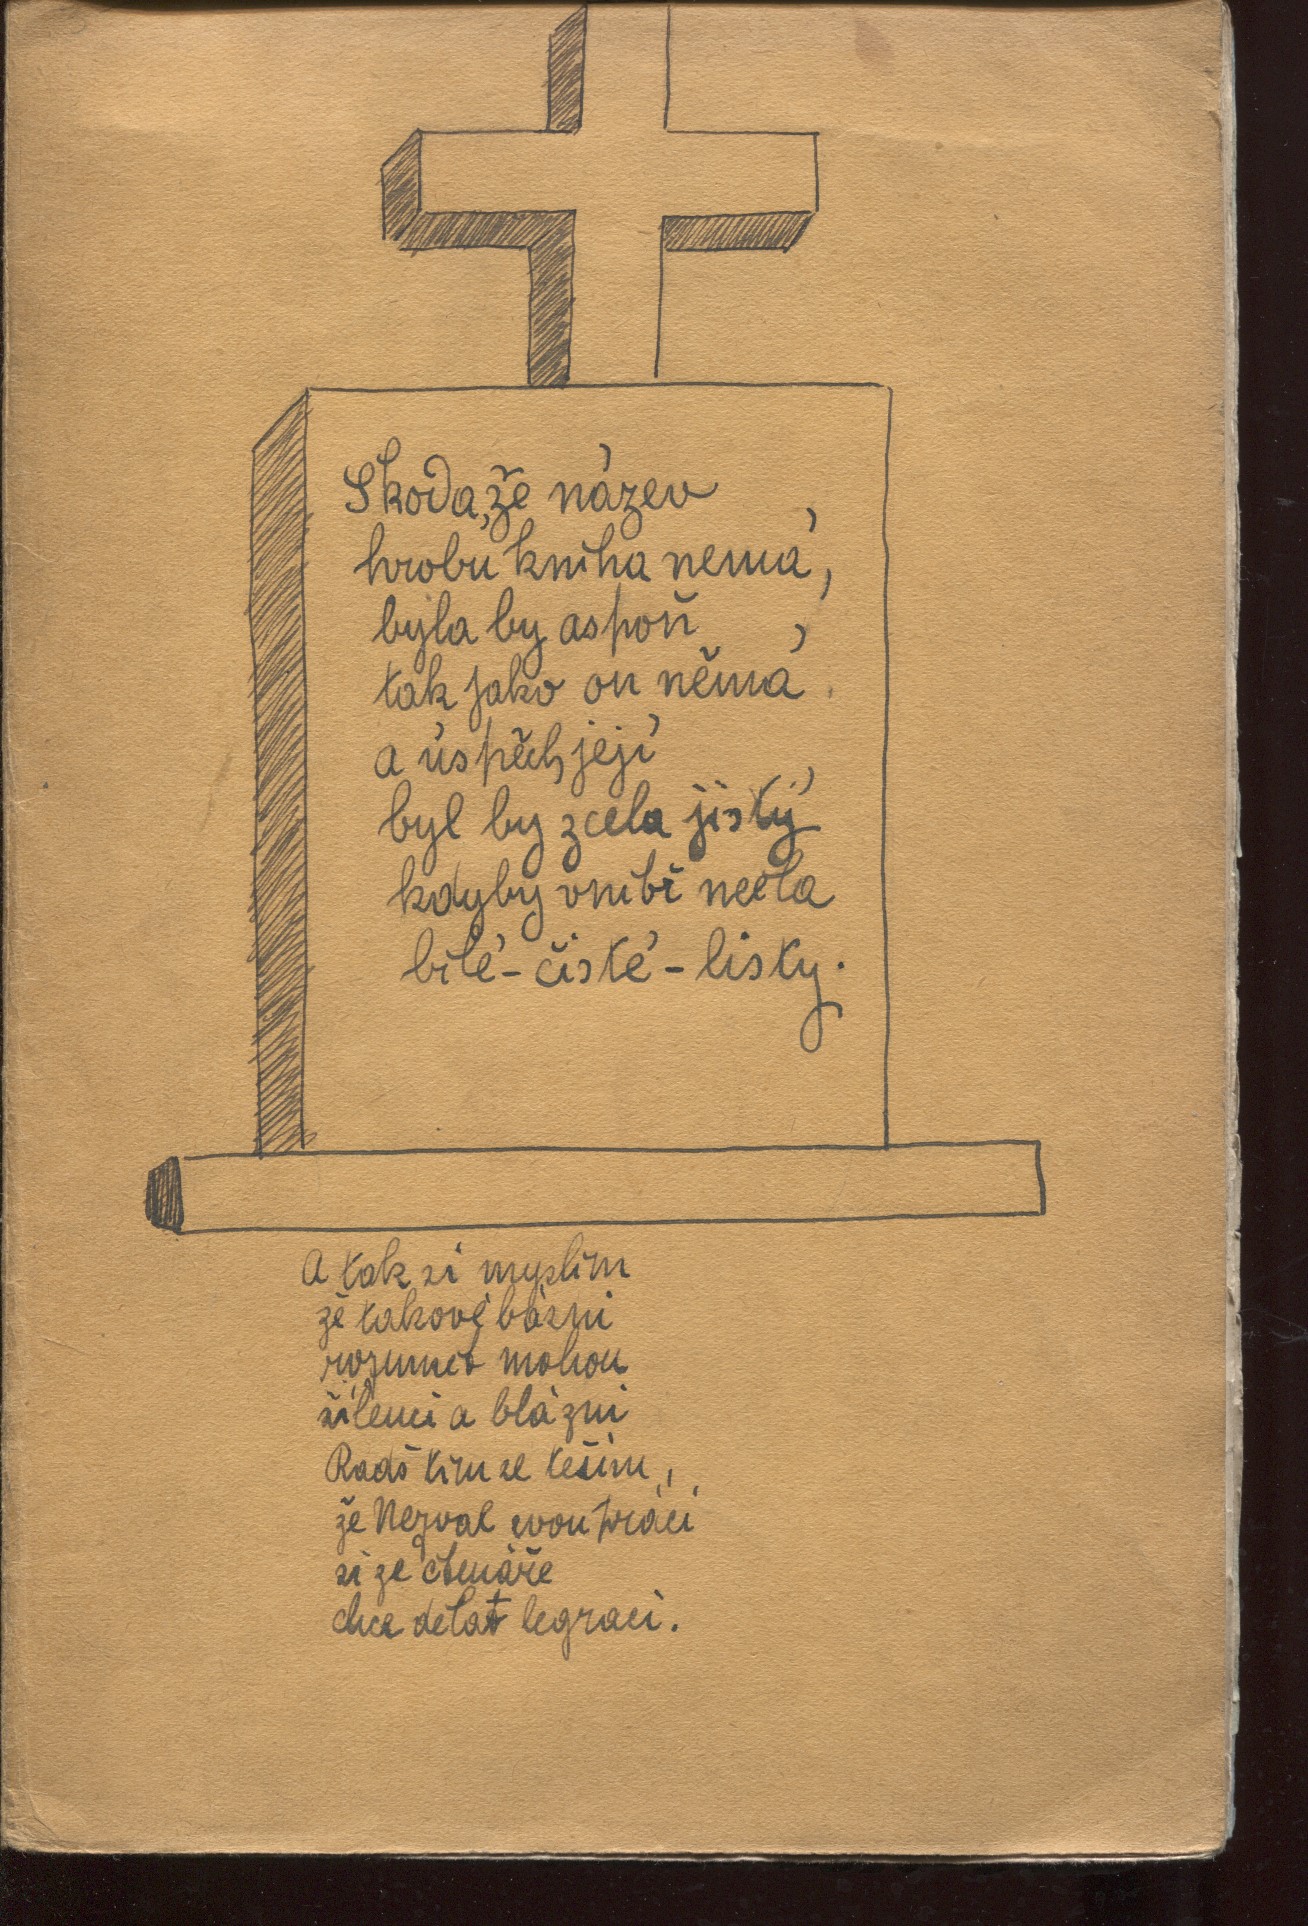 Škoda, že název
hrobu kniha nemá,
byla by aspoň
tak jako on němá
a úspěch její
byl by zcela jistý
kdyby vnitř měla
bílé - čisté - listy.
A tak si myslím
že takové básni
rozumět mohou
šílenci a blázni
Radš tím se těším,
že Nezval svou prácí
si ze čtenáře
chce dělat legraci.